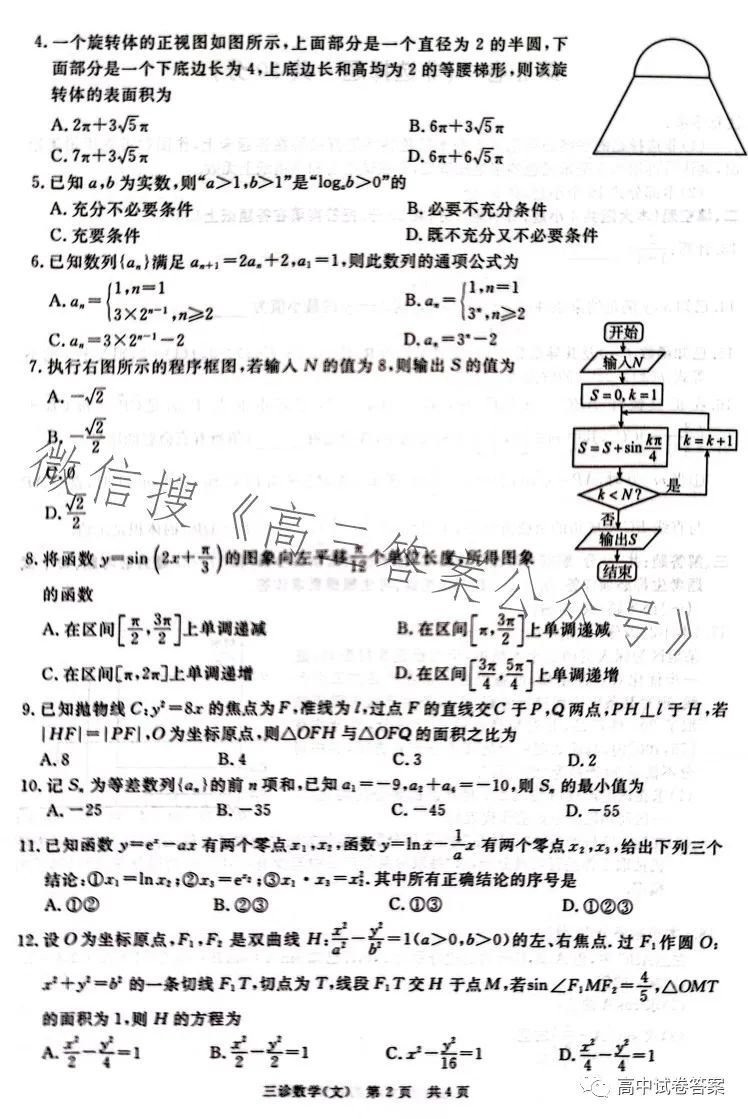 4.一个旋转体的正视图如图所示,上面部分是一个直径为 2 的半圆,下
面部分是一个下底边长为 4,上底边长和高均为 2 的等腰梯形,则该旋
转体的表面积为
A. 2π+3√5π
B. 6π+3√5π
C. 7π+3√5π
D. 6π+6√5π
5.已知 a,b 为实数,则“a>1,b>1”是“logₐb>0”的
A.充分不必要条件
B.必要不充分条件
C.充要条件
D.既不充分又不必要条件
6.已知数列{aₙ}满足 aₙ₊₁=2aₙ+2,a₁=1,则此数列的通项公式为
A. aₙ={1,n=1
3×2ⁿ⁻¹,n≥2
B. aₙ={1,n=1
3ⁿ,n≥2
C. aₙ=3×2ⁿ⁻¹-2
D. aₙ=3ⁿ-2
7.执行右图所示的程序框图,若输入 N 的值为 8,则输出 S 的值为
A. -√2
B. -√2/2
C. 0
D. √2/2
开始
输入N
S=0, k=1
S=S+sin kπ/4
k=k+1
k<N?
是
否
输出S
结束
8.将函数 y=sin(2x+π/3)的图象向左平移π/12个单位长度,所得图象
的函数
A.在区间[π/2,3π/2]上单调递减
B.在区间[π,3π/2]上单调递减
C.在区间[π,2π]上单调递增
D.在区间[3π/4,5π/4]上单调递增
9.已知抛物线 C:y²=8x 的焦点为 F,准线为 l,过点 F 的直线交 C 于 P,Q 两点,PH⊥l 于 H,若
|HF|=|PF|,O 为坐标原点,则△OFH 与△OFQ 的面积之比为
A. 8
B. 4
C. 3
D. 2
10.记 Sₙ 为等差数列{aₙ}的前 n 项和,已知 a₁=-9,a₂+a₄=-10,则 Sₙ 的最小值为
A. -25
B. -35
C. -45
D. -55
11.已知函数 y=eˣ-ax 有两个零点 x₁,x₂,函数 y=lnx-1/a x 有两个零点 x₂,x₃,给出下列三个
结论:①x₁=ln x₂;②x₃=e^x₂;③x₁·x₃=x₂².其中所有正确结论的序号是
A.①②
B.②③
C.①③
D.①②③
12.设 O 为坐标原点,F₁,F₂ 是双曲线 H:x²/a²-y²/b²=1(a>0,b>0)的左、右焦点.过 F₁ 作圆 O:
x²+y²=b² 的一条切线 F₁T,切点为 T,线段 F₁T 交 H 于点 M,若sin∠F₁MF₂=4/5,△OMT
的面积为 1,则 H 的方程为
A. x²/2-y²/4=1
B. x²/2-y²/2=1
C. x²-y²/16=1
D. x²/4-y²/4=1
三诊数学(文) 第 2 页 共 4 页
微信搜《高三答案公众号》
高中试卷答案